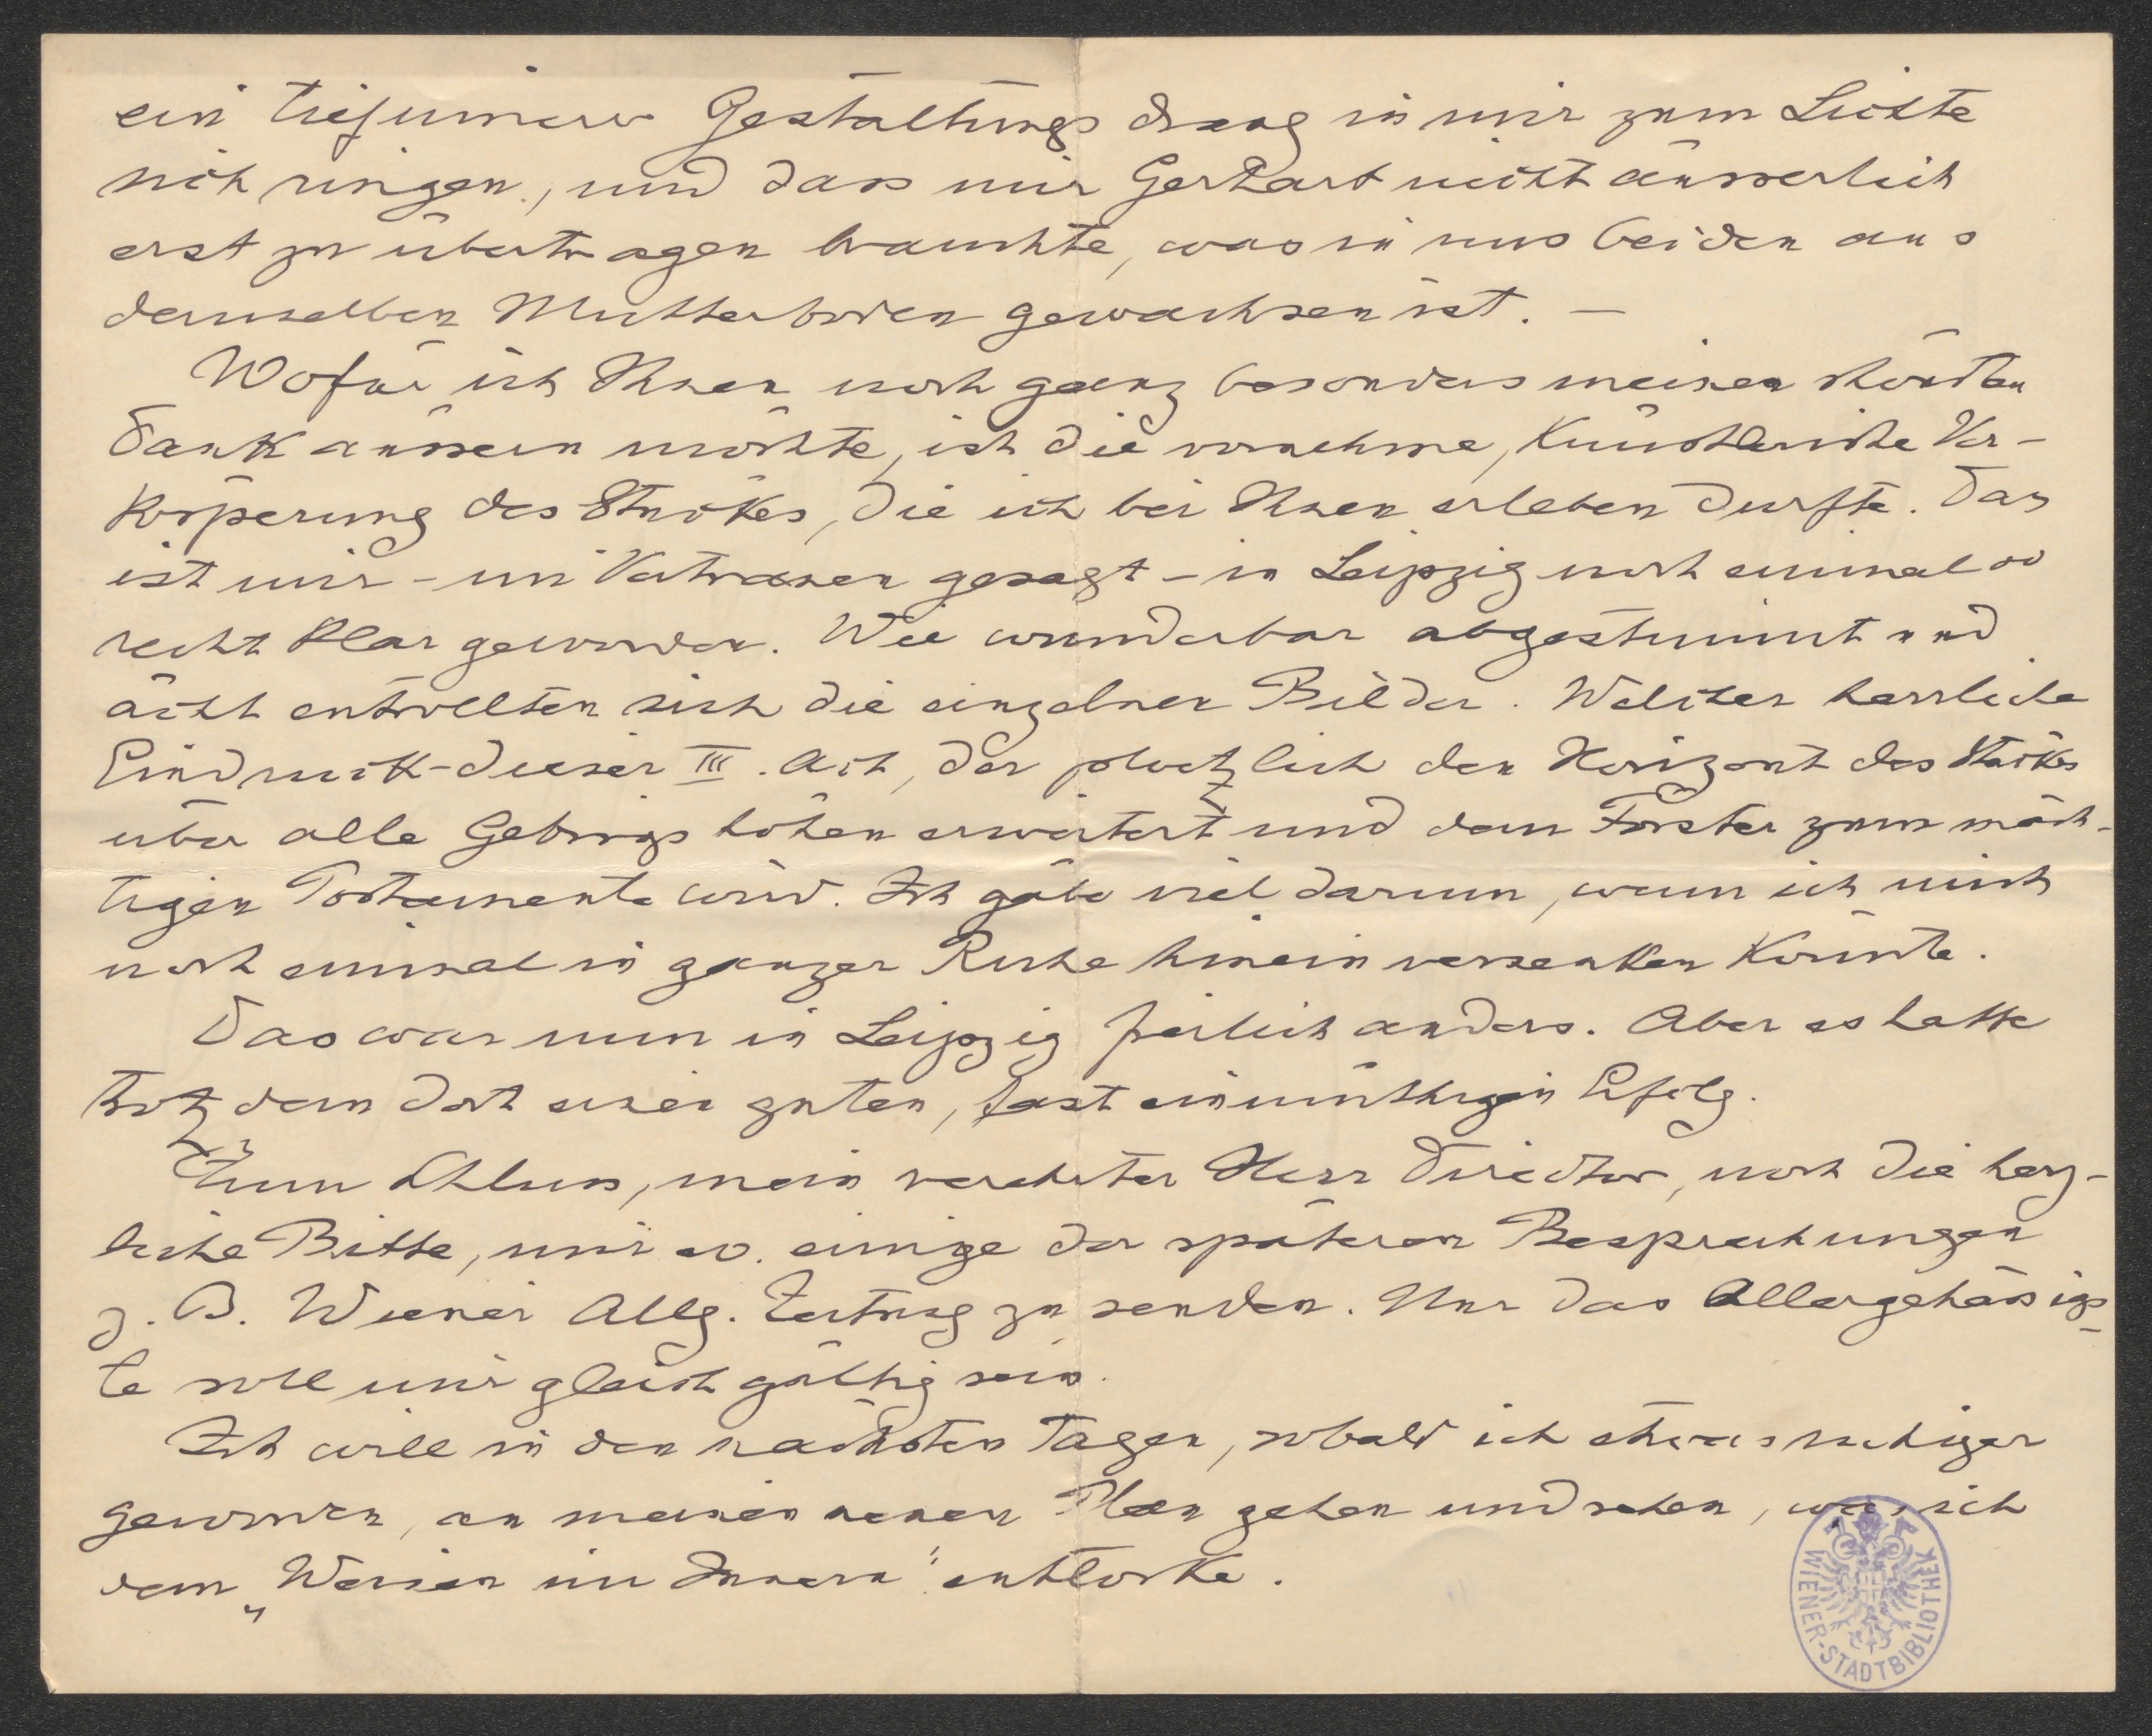 ein tiefinnerer Gestaltungsdrang in mir zum Lichte
sich ringen, und dass mir Gerhart nicht äusserlich
erst zu übertragen brauchte, was in uns beiden aus
demselben Mutterboden gewachsen ist. –
Wofür ich Ihnen noch ganz besonders meinen schönsten
Dank äussern möchte, ist die vornehme, künstlerische Ver-
körperung des Stückes, die ich bei Ihnen erleben durfte. Das
ist mir – im Vertrauen gesagt – in Leipzig noch einmal so
recht klar geworden. Wie wunderbar abgestimmt und
ächt entrollten sich die einzelnen Bilder. Welcher herrliche
Eindruck dieser III. Act, der plötzlich den Horizont des Stückes
über alle Gebirgshöhen erweitert und dem Förster zum mäch-
tigen Testamente wird. Ich gäbe viel darum, wenn ich mich
noch einmal in ganzer Ruhe hinein versenken könnte.
Das war nun in Leipzig freilich anders. Aber es hatte
trotzdem dort einen guten, fast einmüthigen Erfolg.
Zum Schluss, mein verehrter Herr Director, noch die herz-
liche Bitte, mir ev. einige der späteren Besprechungen
z. B. Wiener Allg. Zeitung zu senden. Nur das Allergehässigs-
te soll mir gleichgültig sein.
Ich will in den nächsten Tagen, sobald ich etwas ruhiger
geworden, an meinen neuen Plan gehen und sehen, was ich
dem „Weisen im Innern" entlocke.
WIENER-STADTBIBLIOTHEK